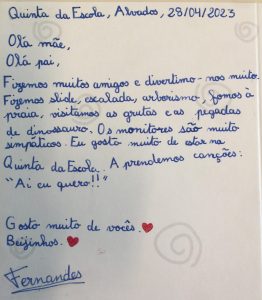 Quinta da Escola, Alvados, 28/04/2023
Olá mãe,
Olá pai,
Fizemos muitos amigos e divertimo-nos muito.
Fizemos slide, escalada, arborismo, fomos à
praia, visitamos as grutas e as pegadas
de dinossauro. Os monitores são muito
simpáticos. Eu gosto muito de estar na
Quinta da Escola. Aprendemos canções:
"Ai eu quero!!"
Gosto muito de vocês.
Beijinhos.
Fernandes